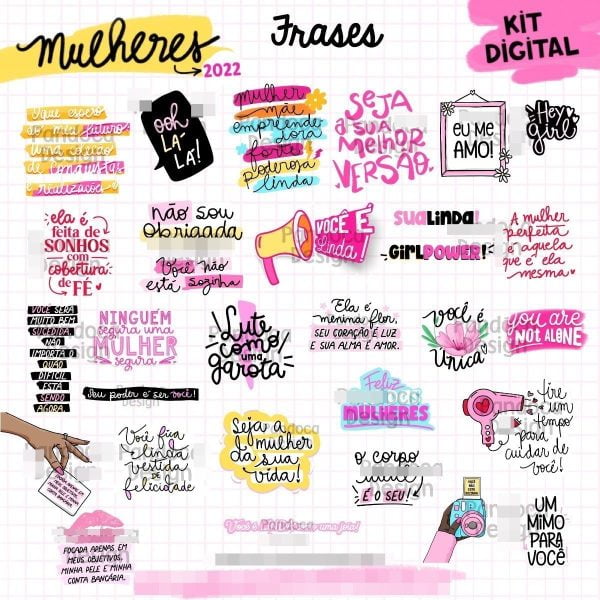 Mulheres
2022
Frases
KIT
DIGITAL
O que espero
do meu futuro:
Uma coleção
de conquistas
e realizações
ooh
LA-
LÁ!
mulher
mãe
empreende
dora
forte
poderosa
linda
SEJA
a SUA
MELHOR
VERSÃO.
EU ME
AMO!
Hey
girl
ela é
feita de
SONHOS
com
cobertura
de FÉ
não sou
obrigada
Você não
está sozinha
VOCÊ É
Linda!
SUA LINDA!
GIRLPOWER!
A mulher
perfeita
é aquela
que é ela
mesma
VOCÊ SERÁ
MUITO BEM
SUCEDIDA
NÃO
IMPORTA O
QUÃO
DIFÍCIL
ESTÁ
SENDO
AGORA.
NINGUÉM
segura uma
MULHER
segura
Seu poder é ser você!
Lute
como
uma
garota
Ela é
menina flor,
SEU CORAÇÃO É LUZ
E SUA ALMA É AMOR.
você é
Única
you are
NOT ALONE
Feliz
MULHERES
tire
um
tempo
para
cuidar de
você!
Você fica
linda
vestida
de
felicidade
Seja a
mulher
da sua
vida!
o corpo
É O SEU!
UM
MIMO
PARA
VOCÊ
FOCADA APENAS EM
MEUS OBJETIVOS,
MINHA PELE E MINHA
CONTA BANCÁRIA.
Você é
uma joia!
Pandoca
Design